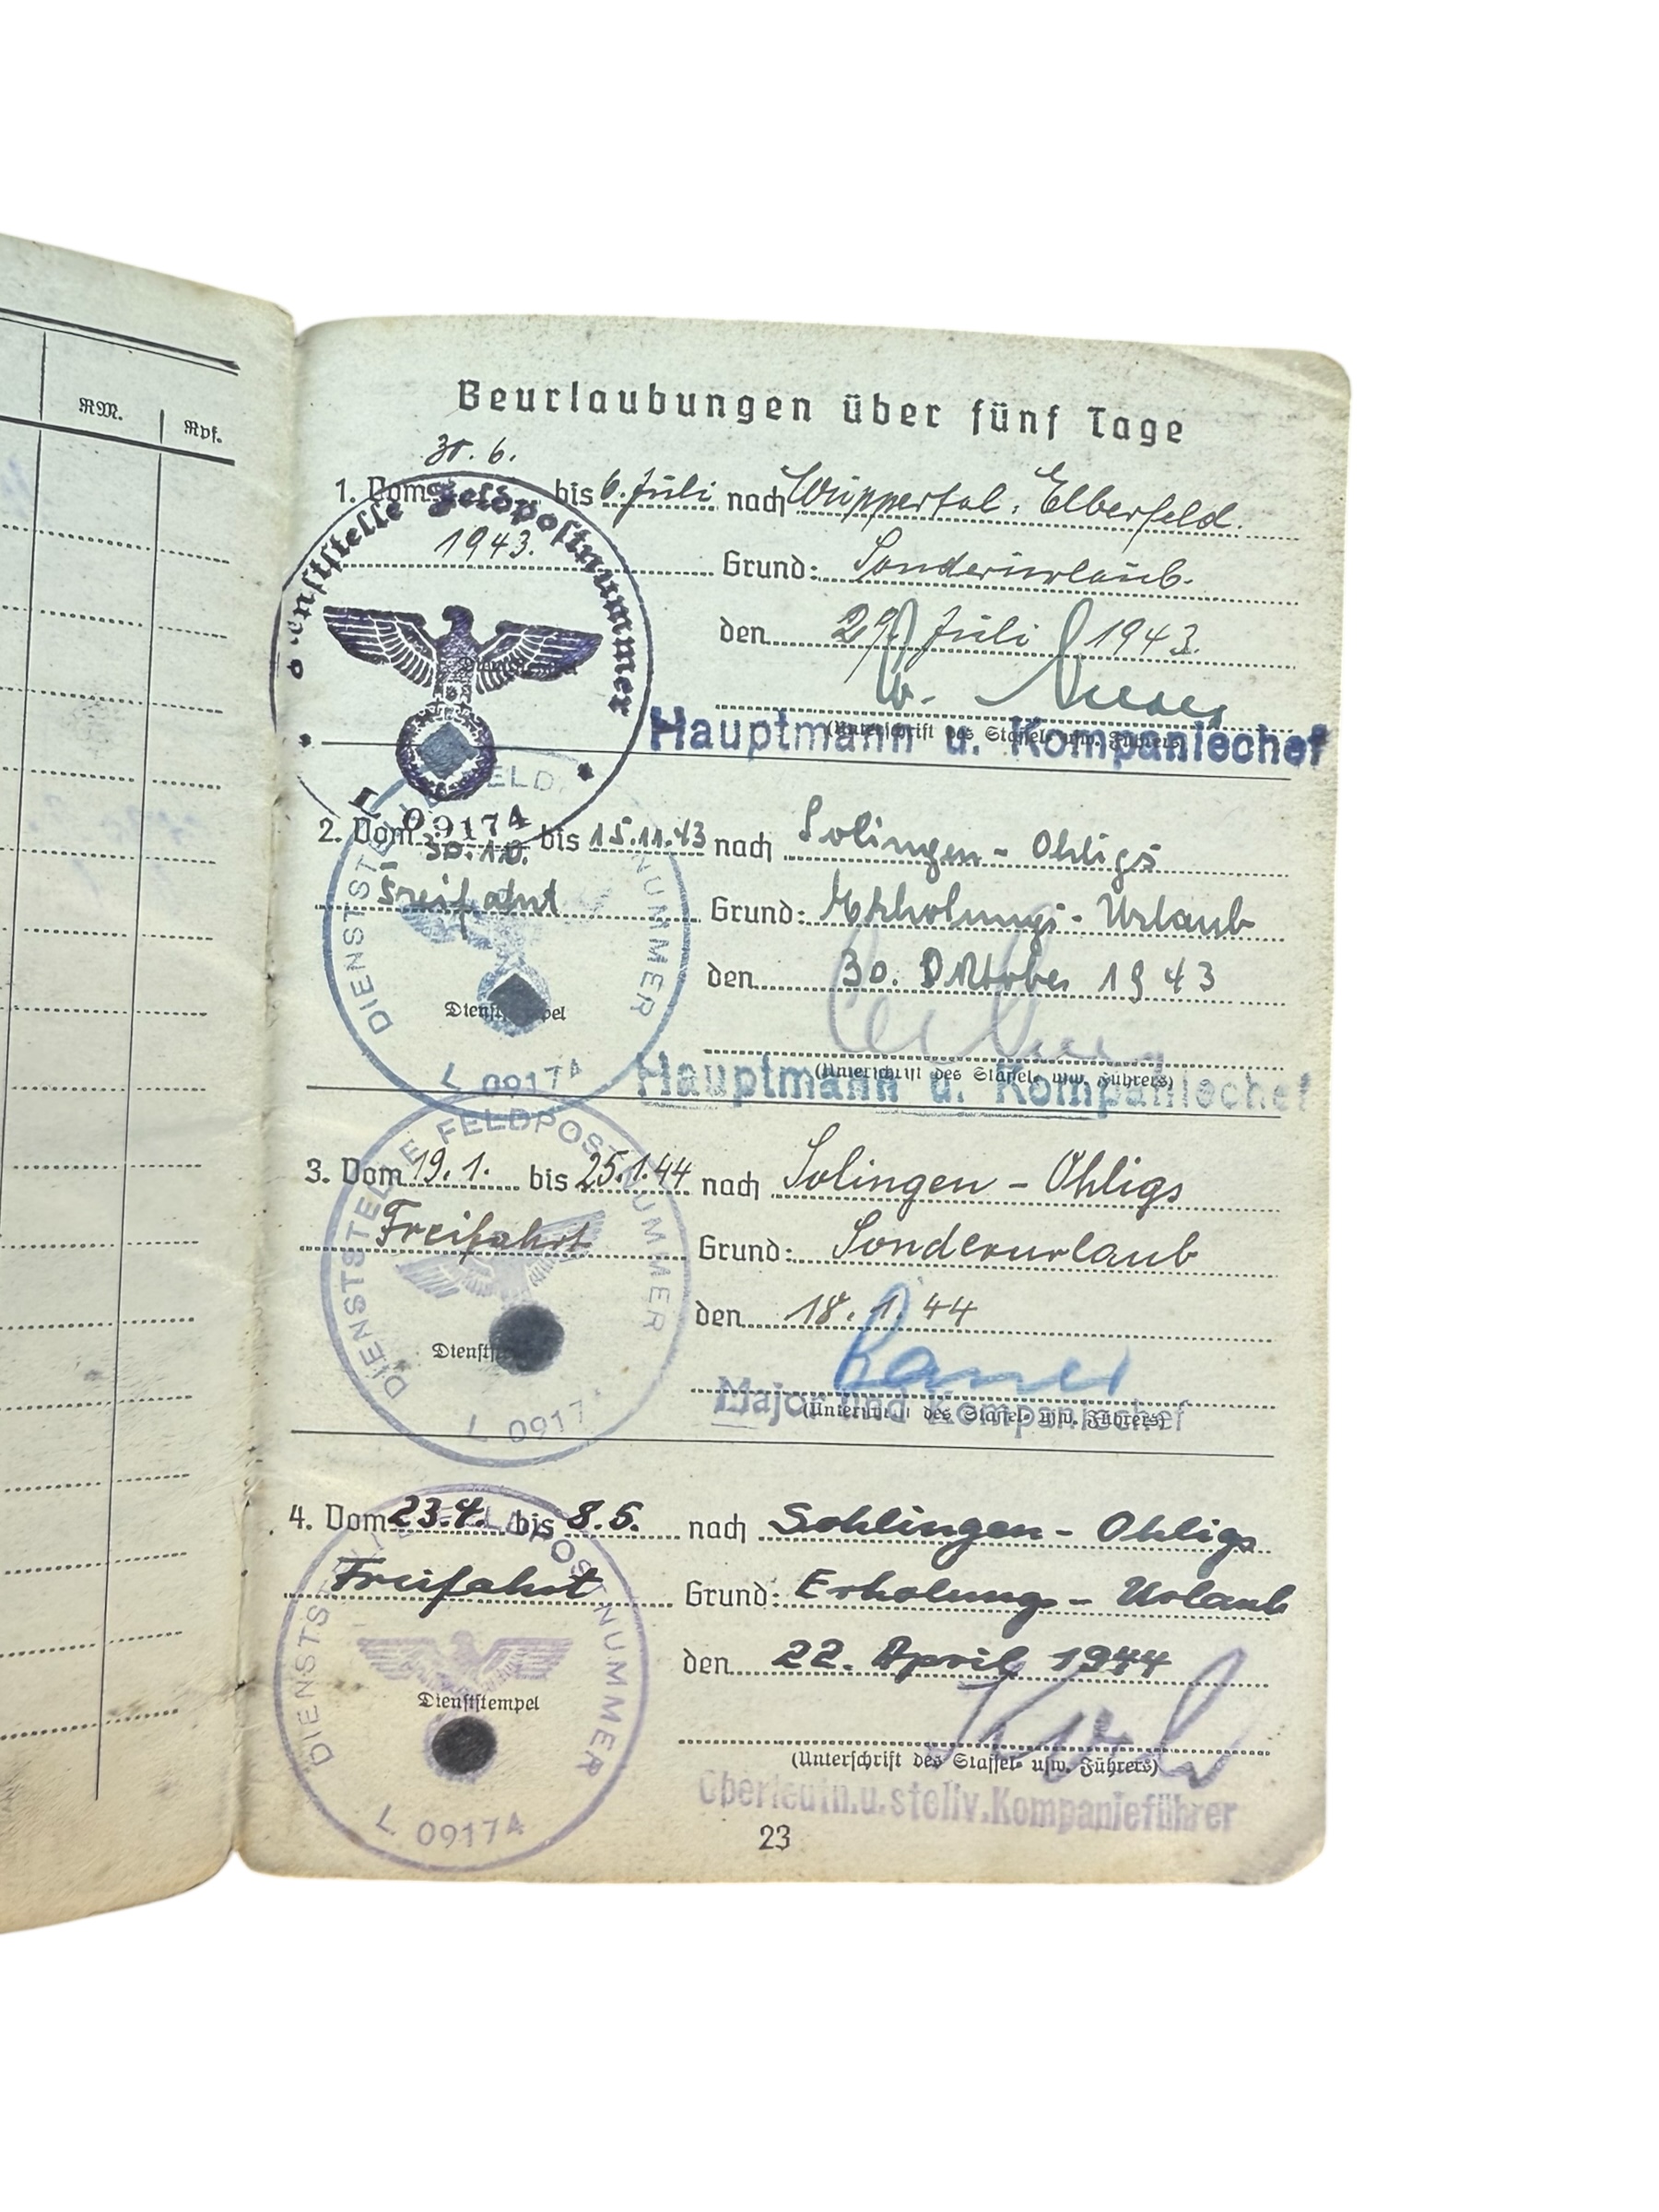 RM. Rpf.
Beurlaubungen über fünf Tage
30. 6.
1. Vom bis 6. Juli nach Wuppertal. Elberfeld.
1943. Grund: Sonderurlaub.
den 29. Juli 1943.
(Unterschrift des Staffel- usw. Führers)
Hauptmann u. Kompaniechef
Dienststelle Feldpostnummer
L 09174
2. Vom 30.10. bis 15.11.43 nach Solingen - Ohligs
Freifahrt Grund: Erholungs- Urlaub
den 30. Oktober 1943
Dienststempel
(Unterschrift des Staffel- usw. Führers)
Hauptmann u. Kompaniechef
DIENSTSTELLE FELDPOSTNUMMER
L 09174
3. Vom 19.1. bis 25.1.44 nach Solingen - Ohligs
Freifahrt Grund: Sonderurlaub
den 18.1.44
Dienststempel
(Unterschrift des Staffel- usw. Führers)
Major und Kompaniechef
DIENSTSTELLE FELDPOSTNUMMER
L 0917
4. Vom 23.4. bis 8.5. nach Sohlingen - Ohligs
Freifahrt Grund: Erholungs - Urlaub
den 22. April 1944
Dienststempel
(Unterschrift des Staffel- usw. Führers)
Oberleutn.u.stellv.Kompanieführer
DIENSTSTELLE FELDPOSTNUMMER
L 09174
23